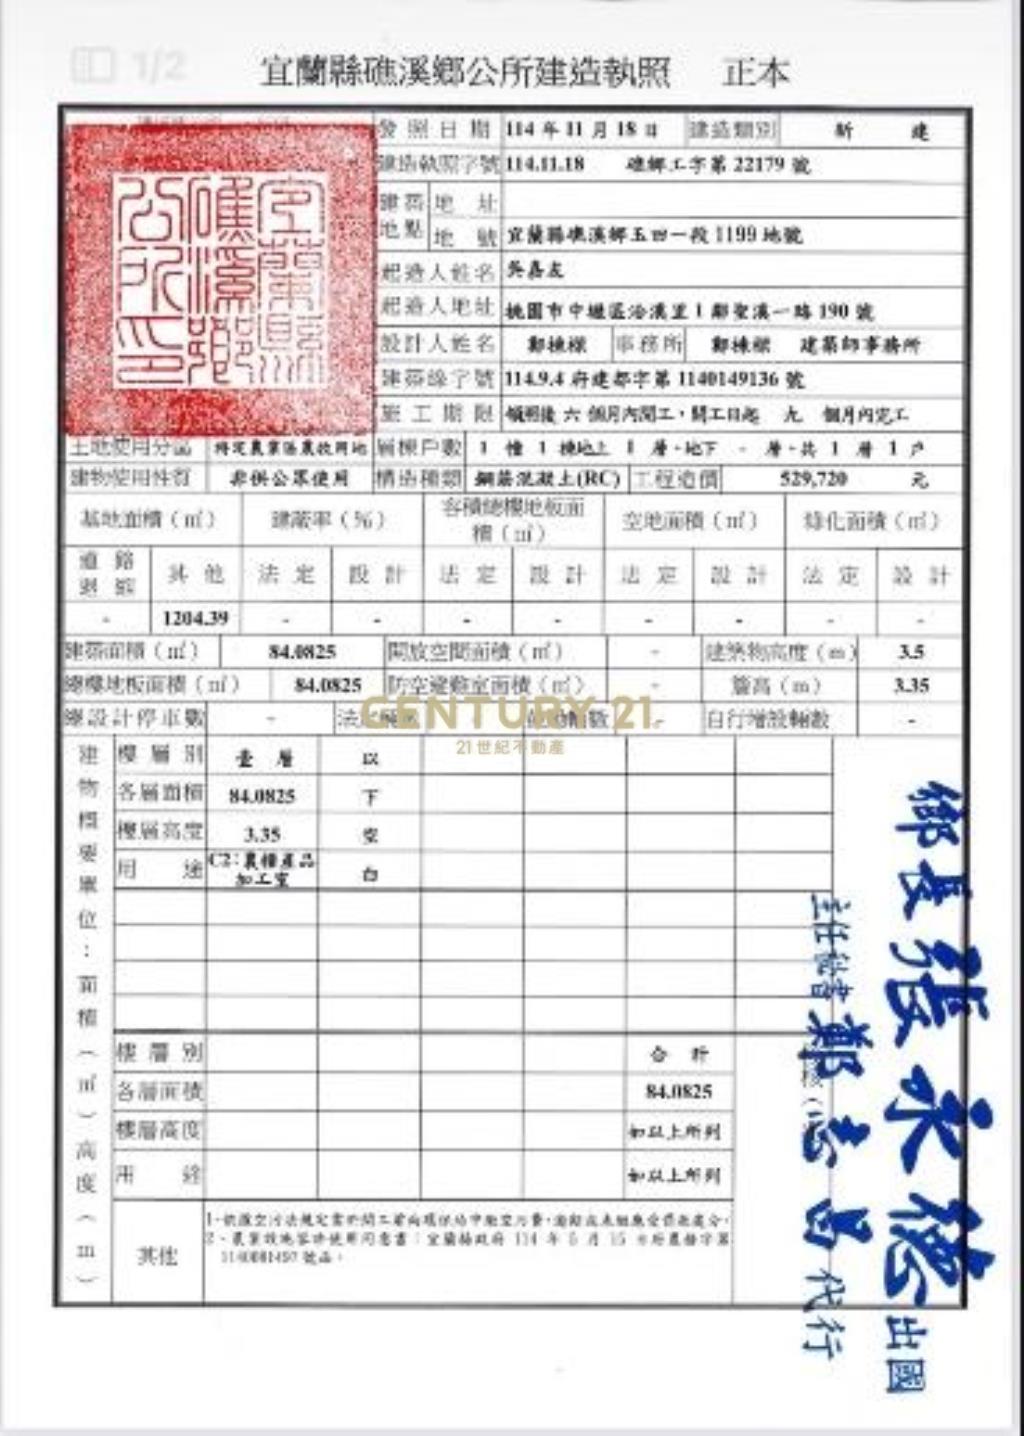 1/2
宜蘭縣礁溪鄉公所建造執照 正本
宜蘭縣礁溪鄉公所印
發照日期 114 年 11 月 18 日 建造類別 新 建
建造執照字號 114.11.18 礁鄉工字第 22179 號
建築地點 地 址
地 號 宜蘭縣礁溪鄉玉田一段 1199 地號
起造人姓名 吳嘉友
起造人地址 桃園市中壢區洽溪里 1 鄰聖溪一路 190 號
設計人姓名 鄭棟樑 事務所 鄭棟樑 建築師事務所
建築線字號 114.9.4 府建都字第 1140149136 號
施工期限 領照後 六 個月內開工，開工日起 九 個月內完工
土地使用分區 特定農業區農牧用地 層棟戶數 1 幢 1 棟地上 1 層，地下 - 層，共 1 層 1 戶
建物使用性質 非供公眾使用 構造種類 鋼筋混凝土(RC) 工程造價 529,720 元
基地面積（㎡） 建蔽率（%） 容積總樓地板面積（㎡） 空地面積（㎡） 綠化面積（㎡）
道路退縮 其 他 法 定 設 計 法 定 設 計 法 定 設 計 法 定 設 計
- 1204.39 - - - - - - - -
建築面積（㎡） 84.0825 開放空間面積（㎡） - 建築物高度（m） 3.5
總樓地板面積（㎡） 84.0825 防空避難室面積（㎡） - 簷高（m） 3.35
總設計停車數 - 法定 輛數 - 自行增設輛數 -
CENTURY 21
21世紀不動產
建物概要單位：面積（㎡）高度（m）
樓層別 壹 層 以
各層面積 84.0825 下
樓層高度 3.35 空
用 途 C2：農糧產品加工室 白
樓層別 合 計
各層面積 84.0825
樓層高度 如以上所列
用 途 如以上所列
其他
1、依據空污法規定需於開工前向環保局申繳空污費，逾期或未繳應受罰款處分。
2、農業設施容許使用同意書：宜蘭縣政府 114 年 5 月 15 日府農務字第
1140081497 號函。
鄉長張永德出國
主任秘書鄭志昌代行